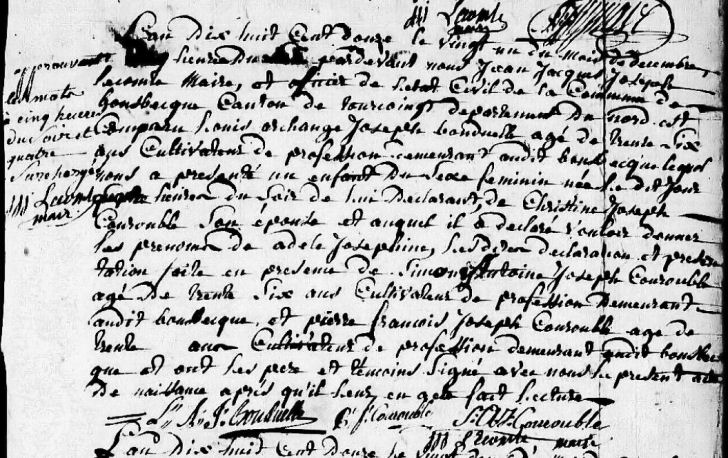 JJJ Lecomte
maire
L'an Dix huit Cent Douze le vingt un du mois de decembre,
heures du pardevant nous Jean Jacques Joseph
Lecomte Maire, et officier de L'etat Civil de La Commune de
bousbecque Canton de tourcoing departement Du nord. est
Comparu Louis archange Joseph bonduelle agé de trente Six
ans Cultivateur de profession demeurant audit bousbecque lequel
nous a presenté un enfant Du Sexe feminin née Le dit Jour
heures du Soir de lui Declarant, de Christine Joseph
Courouble Son épouse et auquel il a declaré vouloir donner
les prenoms de adele Josephine, Lesdites declaration et presen
tation faite en presence de Simon Antoine Joseph Courouble
agé De trente Six ans Cultivateur de profession Demeurant
audit bousbecque, et pierre francois Joseph Courouble age de
trente ans Cultivateur de profession demeurant audit bousbec
que et ont les pere et temoins Signé avec nous le present acte
de naissance après qu'il leur en a eté fait Lecture
Ls A. J. Bonduelle P. f. Courouble S. At. Courouble
JJJ Lecomte maire
L'an Dix huit Cent Douze Le
approuvant
les mots
a cinq heures
du Soir et
quatre
Surchargés
JJJ Lecomte
maire